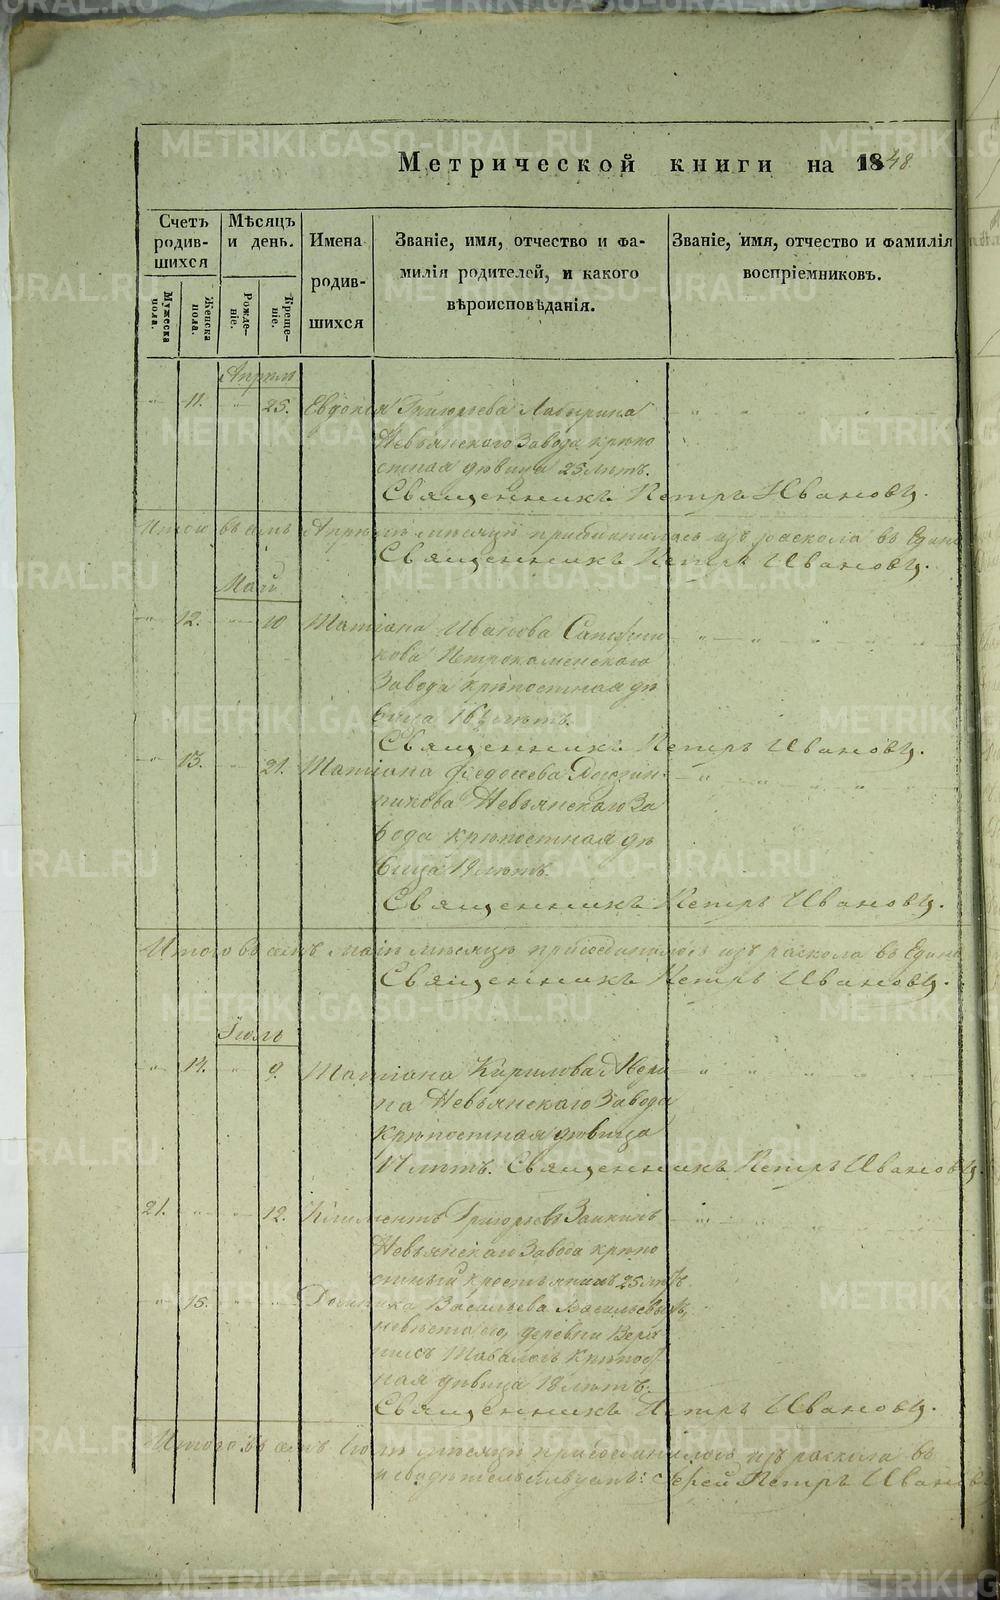 Метрической книги на 1848
Счетъ родившихся
Мѣсяцъ и день.
Имена родившихся
Званіе, имя, отчество и фамилія родителей, и какого вѣроисповѣданія.
Званіе, имя, отчество и фамилія воспріемниковъ.
Мужеска пола.
Женска пола.
Рожденіе.
Крещеніе.
Апрель
11. 25. Евдокія Григорьева
Невьянскаго Завода крѣпо
стная дѣвица 25 лѣтъ.
Священникъ Петръ Ивановъ.
Итого въ семъ Апрѣлѣ мѣсяцѣ присоединилось изъ раскола въ Един
Священникъ Петръ Ивановъ.
Май
12. 10 Татіана Иванова
кова Петрокаменскаго
Завода крѣпостная дѣ
вица 16 лѣтъ.
Священникъ Петръ Ивановъ.
13. 21. Татіана Федосеева
никова Невьянскаго За
вода крѣпостная дѣ
вица 19 лѣтъ.
Священникъ Петръ Ивановъ.
Итого въ семъ маіѣ мѣсяцѣ присоединилось изъ раскола въ Едино
Священникъ Петръ Ивановъ.
Іюль
14. 9. Татіана Кирилова
на Невьянскаго Завода
крѣпостная дѣвица
17 лѣтъ. Священникъ Петръ Ивановъ.
21. 12. Климентъ Григорьевъ Заикинъ
Невьянскаго Завода крѣпо
стный крестьянинъ 25 лѣтъ
15. Васильева
невѣста его, деревни Верх
нихъ Таваловъ крѣпост
ная дѣвица 18 лѣтъ.
Священникъ Петръ Ивановъ.
Итого въ семъ мѣсяцѣ присоединилось изъ раскола въ
Іерей Петръ Иванов
METRIKI.GASO-URAL.RU